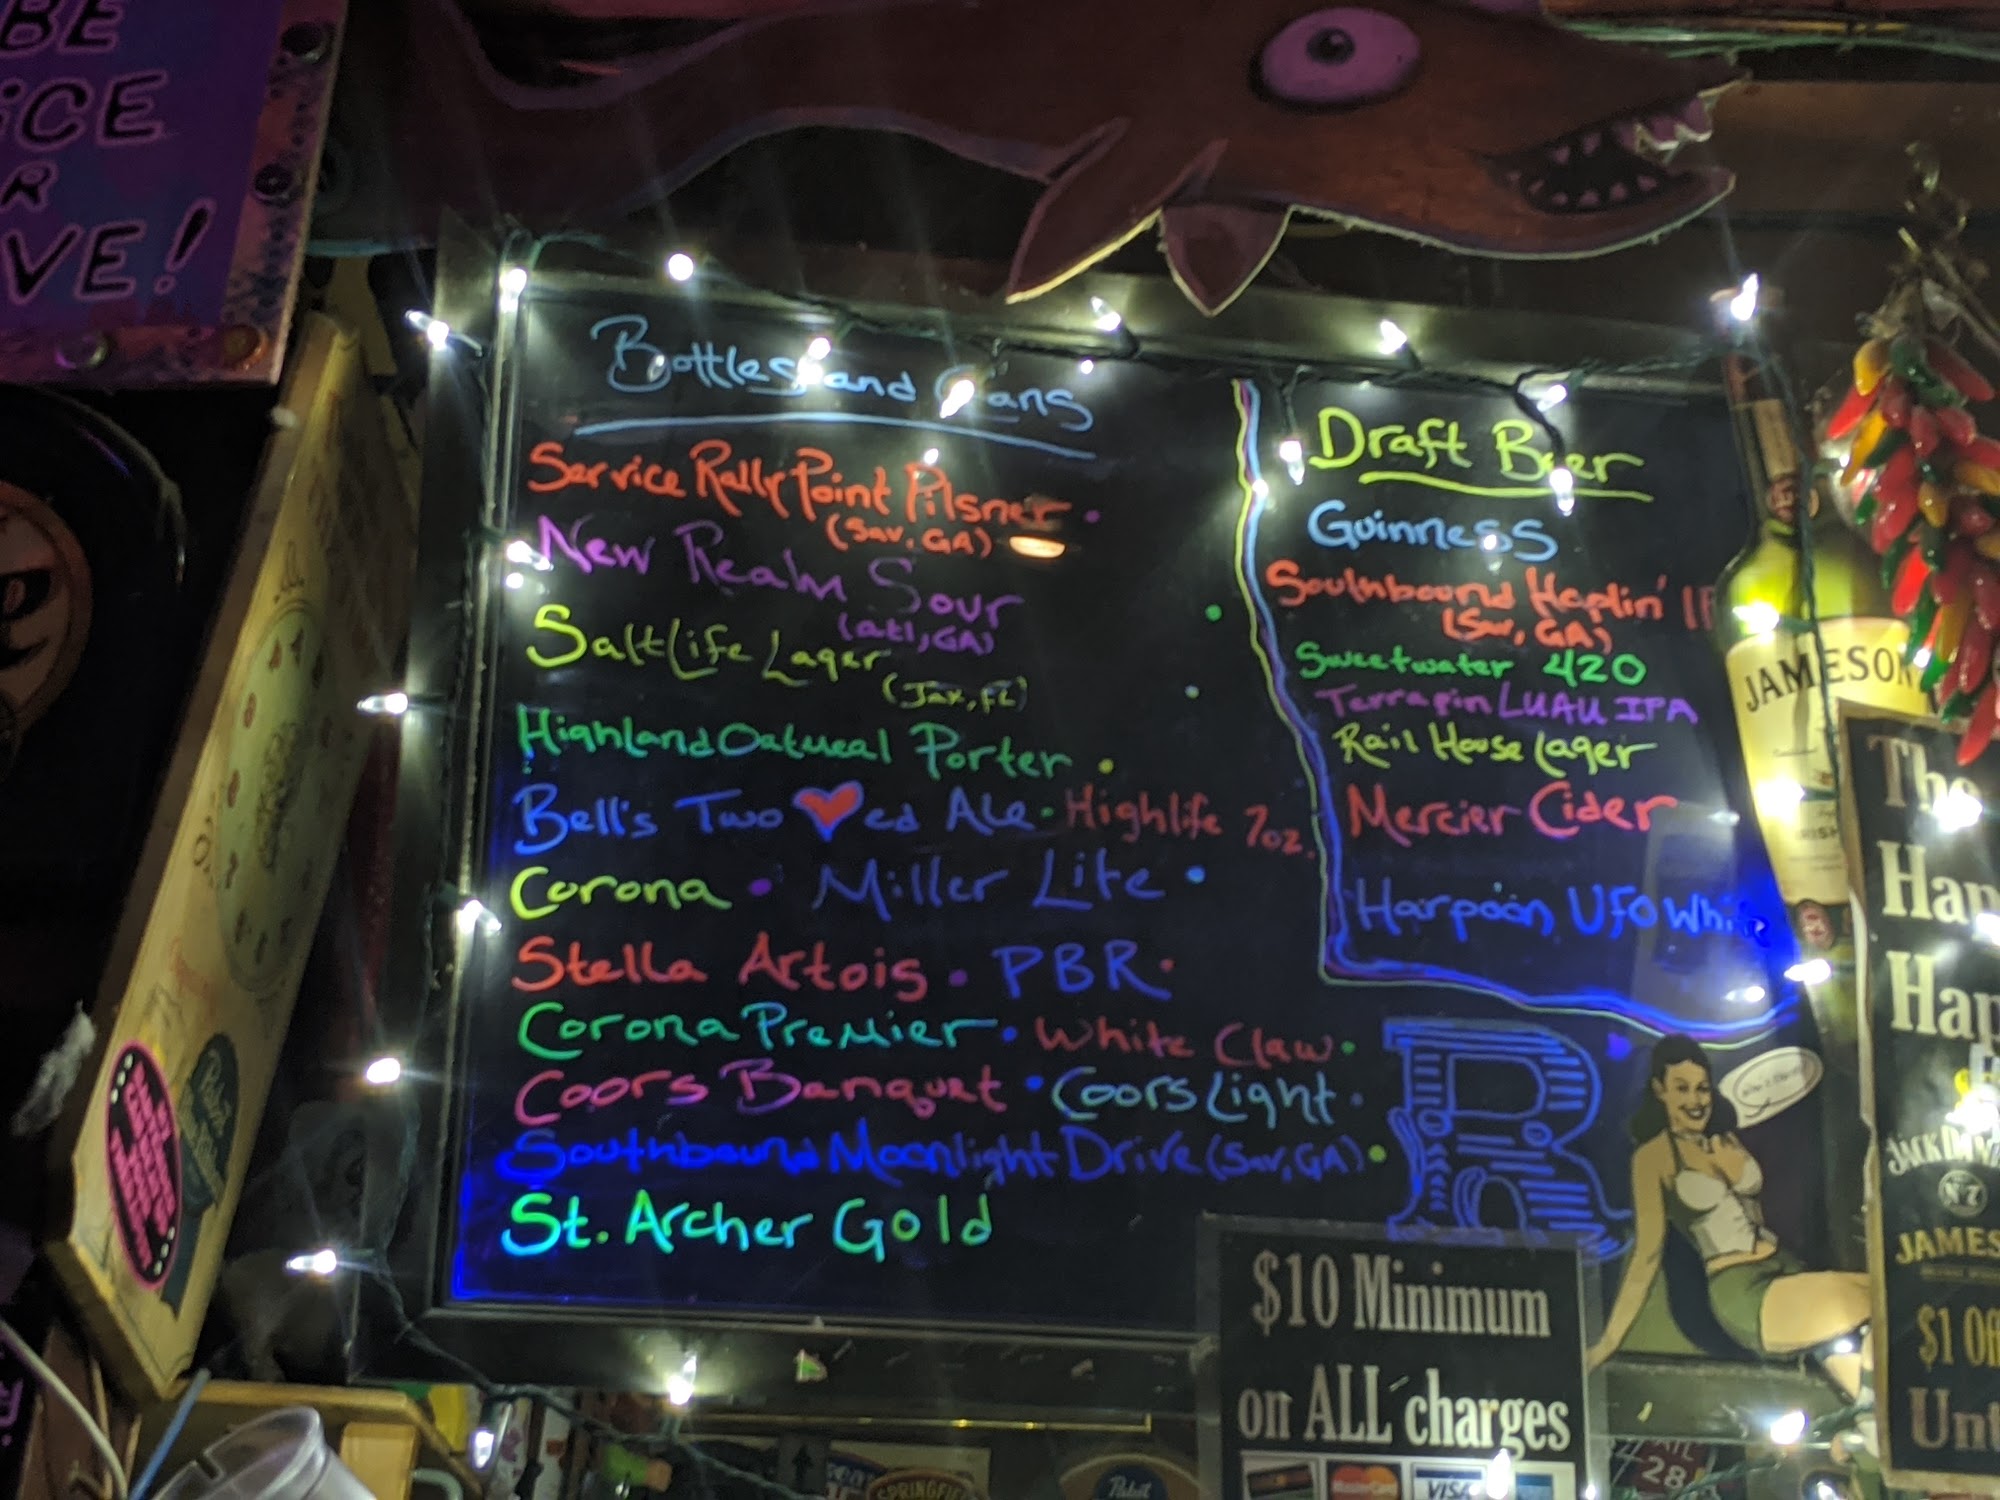 BE
iCE
R
VE!
Bottles and Cans
Service Rally Point Pilsner
(Sav, GA)
New Realm Sour
(atl, GA)
Salt Life Lager
(Jax, FL)
Highland Oatmeal Porter
Bell's Two ❤ed Ale · Highlife 7oz.
Corona · Miller Lite
Stella Artois · PBR
Corona Premier · White Claw
Coors Banquet · Coors Light
Southbound Moonlight Drive (Sav, GA)
St. Archer Gold
Draft Beer
Guinness
Southbound Hoplin' IP
(Sav, GA)
Sweetwater 420
Terrapin LUAU IPA
Rail House Lager
Mercier Cider
Harpoon UFO White
R
JAMESON
The
Hap
Hap
JACK DANI
No 7
JAMES
$1 Off
Unt
$10 Minimum
on ALL charges
MasterCard
VISA
SPRINGFI
Pabst
ATL
28